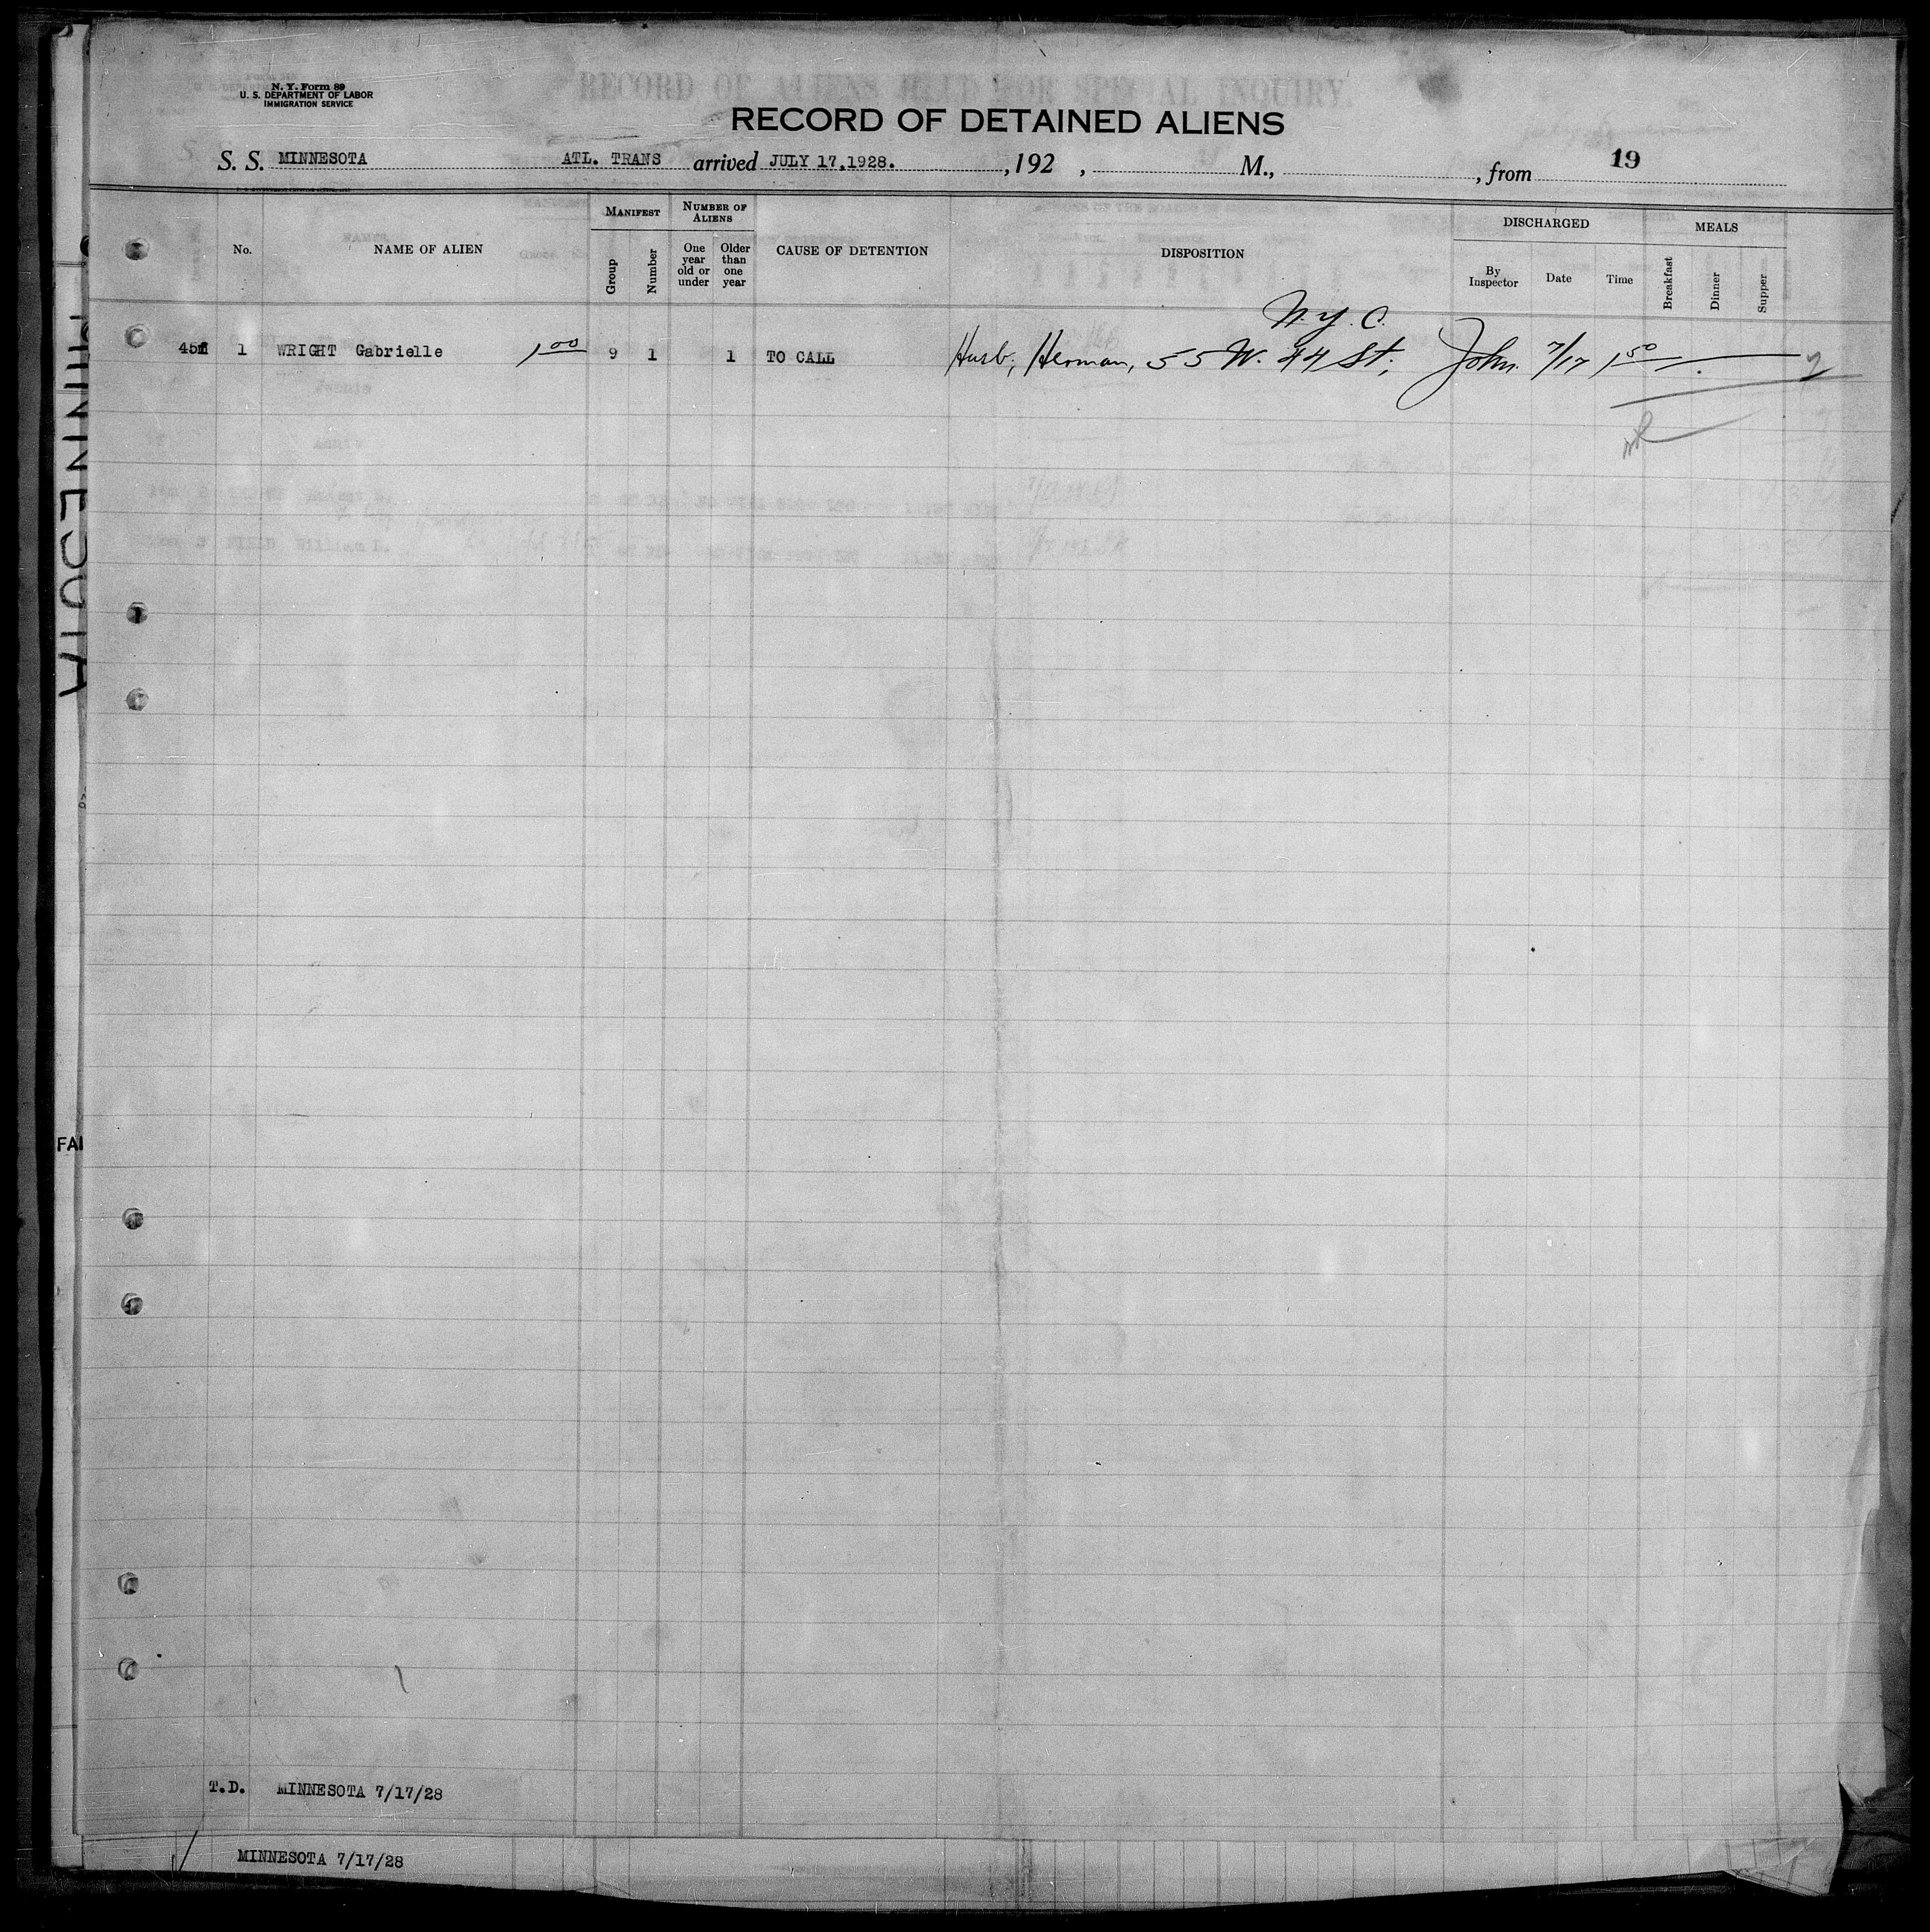 N. Y. Form 89
U. S. DEPARTMENT OF LABOR
IMMIGRATION SERVICE
RECORD OF ALIENS HELD FOR SPECIAL INQUIRY.
RECORD OF DETAINED ALIENS
S. S. MINNESOTA ATL. TRANS arrived JULY 17,1928. ,192 , M., , from 19
No. NAME OF ALIEN MANIFEST Group Number NUMBER OF ALIENS One year old or under Older than one year CAUSE OF DETENTION DISPOSITION DISCHARGED By Inspector Date Time MEALS Breakfast Dinner Supper
N.Y.C.
1 WRIGHT Gabrielle 1 00 9 1 1 TO CALL Husb, Herman, 55 W. 44 St; John. 7/17 1 50
MINNESOTA
FAI
T.D. MINNESOTA 7/17/28
MINNESOTA 7/17/28